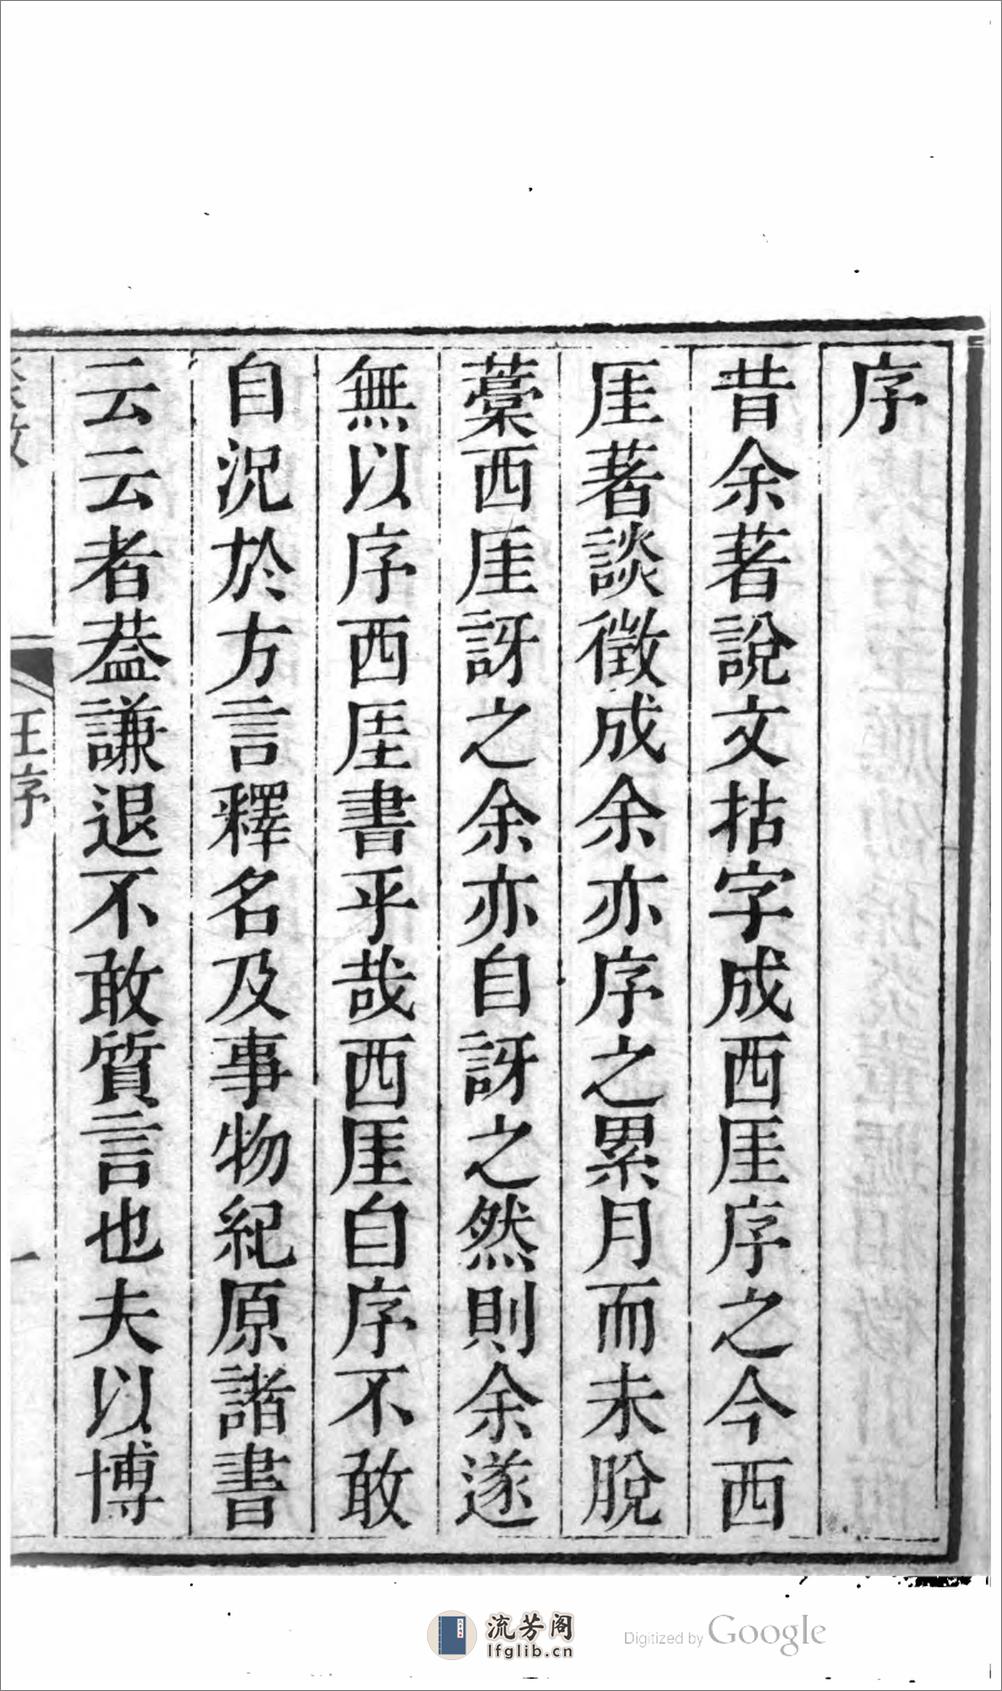 序
昔余著說文拈字成西厓序之今西
厓著談徵成余亦序之累月而未脫
藳西厓訝之余亦自訝之然則余遂
無以序西厓書乎哉西厓自序不敢
自況於方言釋名及事物紀原諸書
云云者葢謙退不敢質言也夫以博
王序
一
流芳阁
lfglib.cn
Digitized by Google